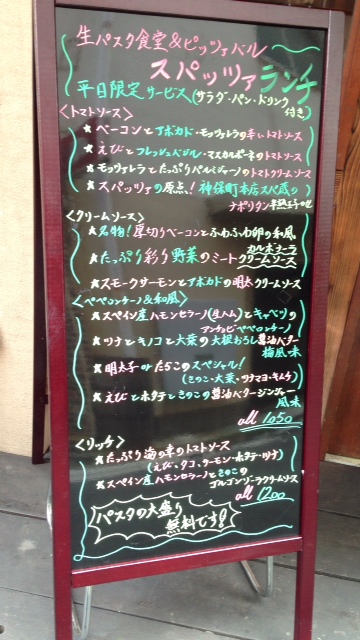 生パスタ食堂&ピッツァバル
スパッツァランチ
平日限定サービス(サラダ・パン・ドリンク
付き)
<トマトソース>
★ベーコンとアボカド・モッツァレラの辛いトマトソース
★えびとフレッシュバジル・マスカルポーネのトマトソース
★モッツァレラとたっぷりパルミジャーノのトマトクリームソース
★スパッツァの原点!神保町本店スパ蔵の
ナポリタン 半熟玉子のせ
<クリームソース>
★名物!厚切りベーコンとふわふわ卵の和風
カルボナーラ
★たっぷり彩り野菜のミートクリームソース
★スモークサーモンとアボカドの明太クリームソース
<ペペロンチーノ&和風>
★スペイン産ハモンセラーノ(生ハム)とキャベツの
アンチョビペペロンチーノ
★ツナとキノコと大葉の大根おろし醤油バター
梅風味
★明太子orたらこのスペシャル!
(きのこ・大葉・ツナマヨ・キムチ)
★えびとホタテときのこの醤油バタージンジャー
風味
all 1050
<リッチ>
★たっぷり海の幸のトマトソース
(えび・タコ・サーモン・ホタテ・ツナ)
★スペイン産ハモンセラーノときのこの
ゴルゴンゾーラクリームソース
all 1200
パスタの大盛り
無料です!